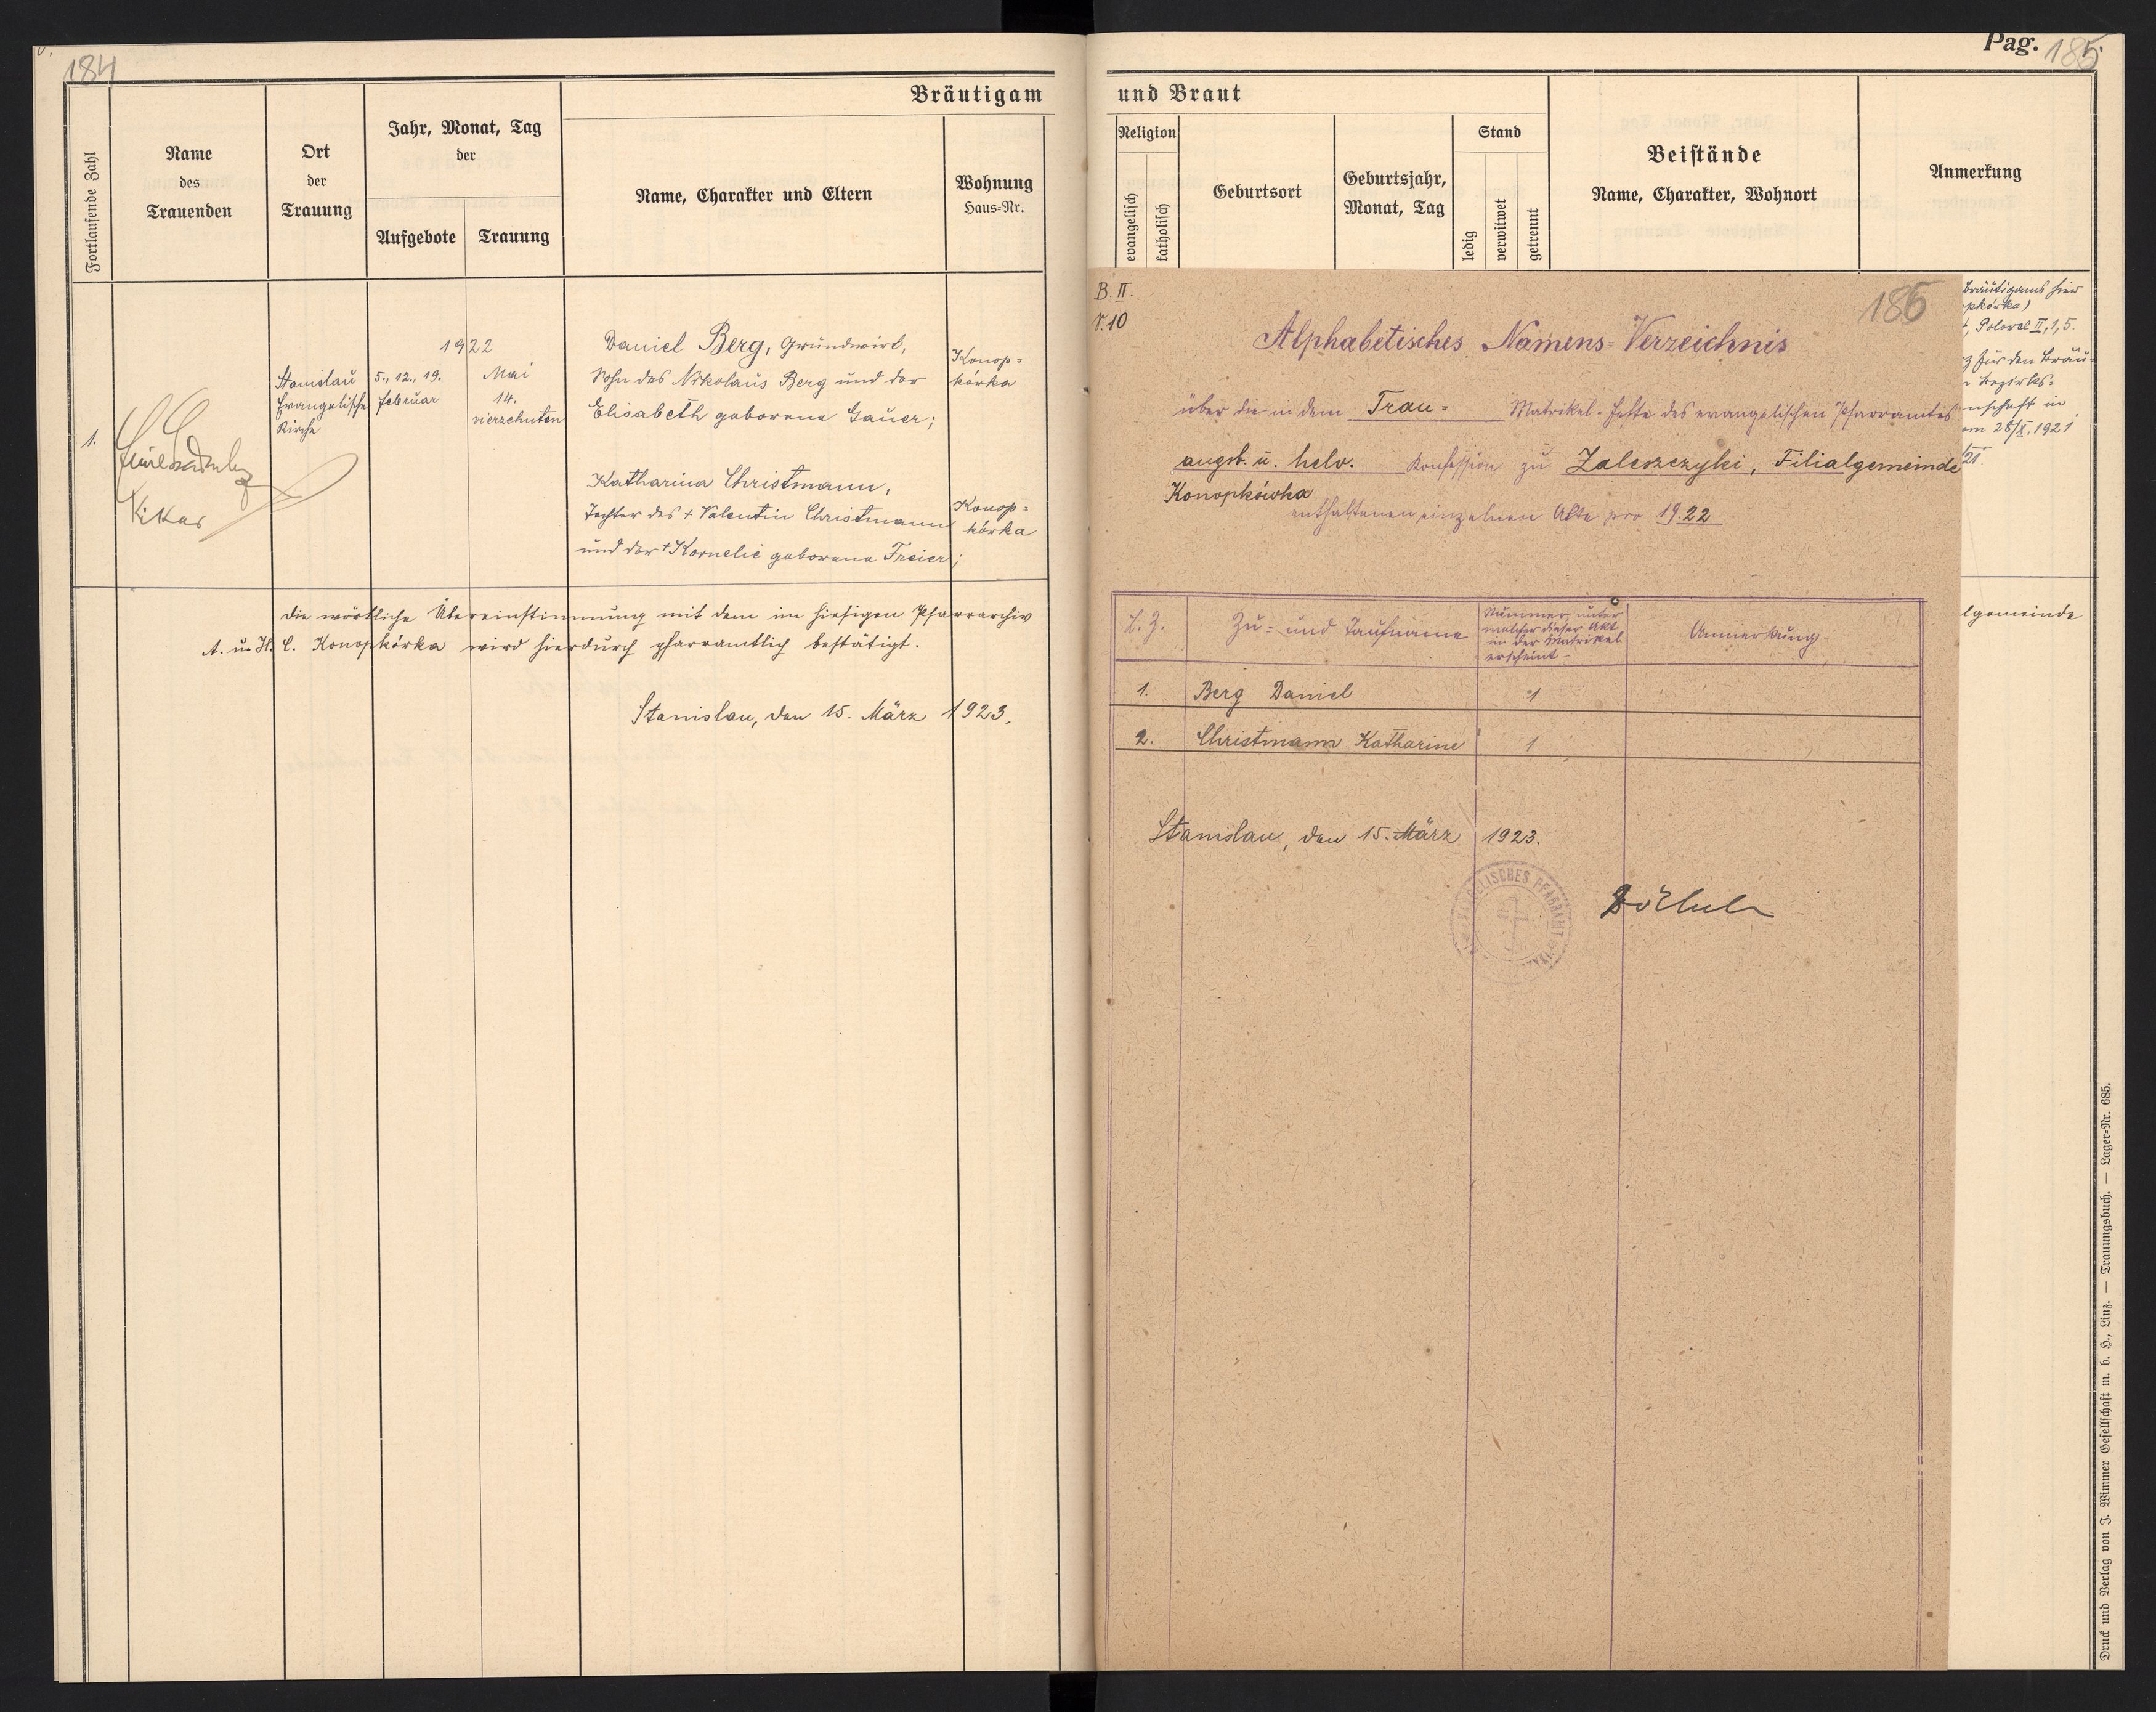 184
Bräutigam
Fortlaufende Zahl
Name
des
Trauenden
Ort
der
Trauung
Jahr, Monat, Tag
der
Aufgebote
Trauung
Name, Charakter und Eltern
Wohnung
Haus-Nr.
1.
Vikar
Stanislau
Evangelische
Kirche
1922
5., 12., 19.
Februar
Mai
14.
vierzehnten
Daniel Berg, Grundwirt,
Sohn des Nikolaus Berg und der
Elisabeth geborene Gauer;
Konop=
kórka
Katharina Christmann,
Tochter des + Valentin Christmann
und der + Kornelie geborene Freier;
Konop=
kórka
Die wörtliche Übereinstimmung mit dem im hiesigen Pfarrarchiv
A. u. H. C. Konopkórka wird hierdurch pfarramtlich bestätigt.
Stanislau, den 15. März 1923.
Pag. 185
und Braut
Religion
evangelisch
katholisch
Geburtsort
Geburtsjahr,
Monat, Tag
Stand
ledig
verwitwet
getrennt
Beistände
Name, Charakter, Wohnort
Anmerkung
Bräutigams hier
pkórka)
II, 1, 5.
z für den Bräu-
Bezirks-
nschaft in
om 28/X. 1921
21.
lgemeinde
B. II.
V. 10
186
Alphabetisches Namens-Verzeichnis
über die in dem Trau= Matrikel-Hefte des evangelischen Pfarramtes
augsb. u. helv. Konfession zu Zaleszczyki, Filialgemeinde
Konopkówka
enthaltenen einzelnen Akte pro 1922
L. Z.
Zu- und Taufname
Nummer, unter
welcher dieser Akt
in der Matrikel
erscheint
Anmerkung
1. Berg Daniel 1
2. Christmann Katharine 1
Stanislau, den 15. März 1923.
Druck und Verlag von J. Wimmer Gesellschaft m. b. H., Linz. — Trauungsbuch. — Lager-Nr. 685.